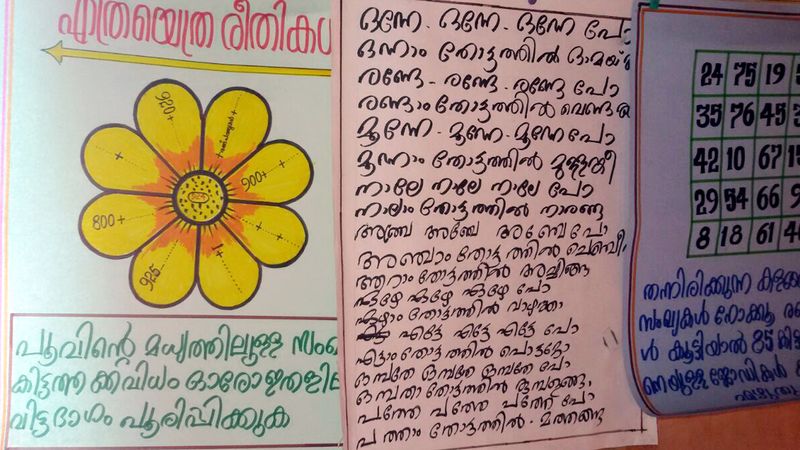 എത്രയെത്ര രീതികൾ
920+
900+
800+
925
+1
പൂവിന്റെ മധ്യത്തിലുള്ള സംഖ്യ
കിട്ടത്തക്കവിധം ഓരോ ഇതളിലെ
വിട്ടഭാഗം പൂരിപ്പിക്കുക
ഒന്നേ - ഒന്നേ - ഒന്നേ പോ
ഒന്നാം തോട്ടത്തിൽ
രണ്ടേ - രണ്ടേ - രണ്ടേ പോ
രണ്ടാം തോട്ടത്തിൽ വെണ്ട
മൂന്നേ - മൂന്നേ - മൂന്നേ പോ
മൂന്നാം തോട്ടത്തിൽ
നാലേ നാലേ നാലേ പോ
നാലാം തോട്ടത്തിൽ നാരങ്ങ
അഞ്ചേ അഞ്ചേ അഞ്ചേ പോ
അഞ്ചാം തോട്ടത്തിൽ
ആറാം തോട്ടത്തിൽ
ഏഴേ ഏഴേ ഏഴേ പോ
ഏഴാം തോട്ടത്തിൽ വാഴക്കാ
എട്ടേ എട്ടേ എട്ടേ പോ
എട്ടാം തോട്ടത്തിൽ
ഒമ്പതേ ഒമ്പതേ ഒമ്പതേ പോ
ഒമ്പതാം തോട്ടത്തിൽ
പത്തേ പത്തേ പത്തേ പോ
പത്താം തോട്ടത്തിൽ - മത്തങ്ങ
24 75 19
35 76 45
42 10 67
29 54 66
8 18 61
തന്നിരിക്കുന്ന
സംഖ്യകൾ നോക്കൂ
ൾ കൂട്ടിയാൽ 85
ജോഡികൾ